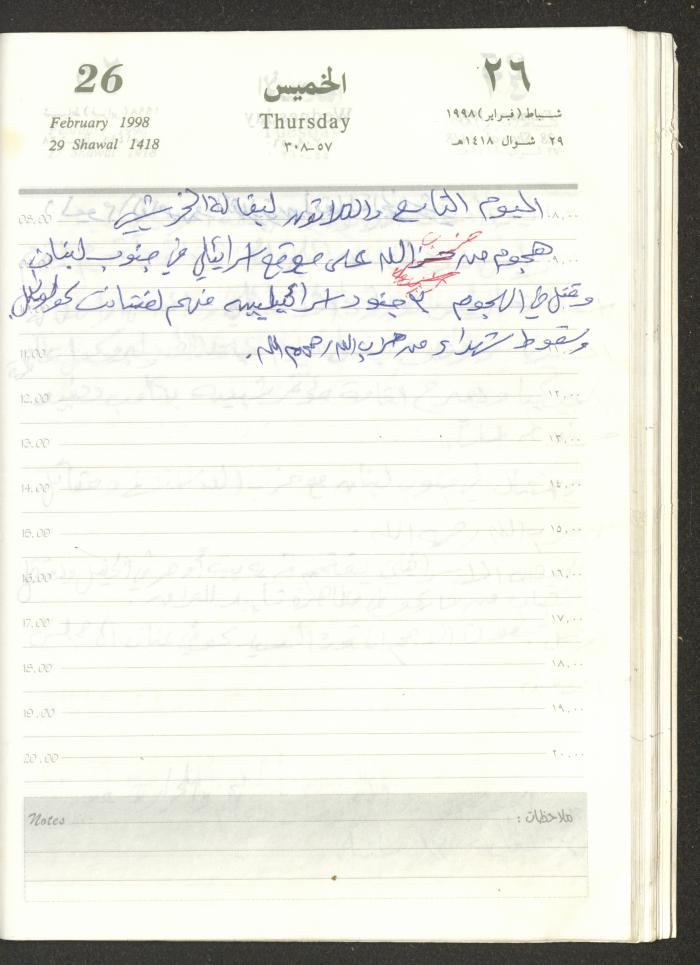 26 الخميس ٢٦
February 1998 Thursday شباط (فبراير) ١٩٩٨
29 Shawal 1418 ٣٠٨-٥٧ ٢٩ شوال ١٤١٨هـ
08.00 اليوم التاسع والثلاثون ٨,٠٠
هجوم من حزب الله على موقع اسرائيلي في جنوب لبنان ٩,٠٠
وقتل في الهجوم ٣ جنود اسرائيليين منهم
11.00 وسقوط شهداء من حزب الله رحمهم الله.
12.00 ١٢,٠٠
13.00 ١٣,٠٠
14.00 ١٤,٠٠
15.00 ١٥,٠٠
16.00 ١٦,٠٠
17.00 ١٧,٠٠
18.00 ١٨,٠٠
19.00 ١٩,٠٠
20.00 ٢٠,٠٠
Notes ملاحظات :